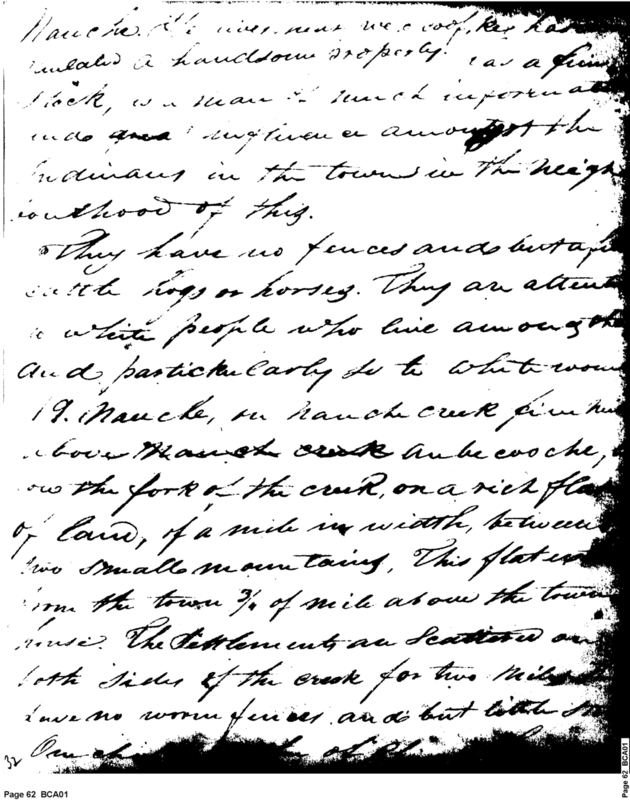 Nauche. He lives near we coof kee has
mulated a handsome property has a fine
stock, is a man of much informat
and influence amongst the
Indians in the towns in the neigh
bourhood of this.
They have no fences and but a few
cattle hogs or horses. They are attent
to white people who live among the
And partickularly so to white wom
19. Nauche, on nauche creek five mi
above an be cooche,
ow the fork of the creek, on a rich flat
of land, of a mile in width, between
two small mountains, This flat ex
from the town 3/4 of mile above the town
house. The settlements are scattered on
both sides of the creek for two miles
have no worm fences and but little s
One
32
Page 62 BCA01
Page 62 BCA01